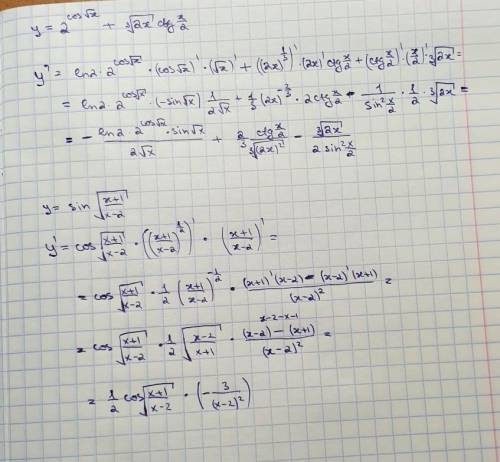 y = 2^{cos√x} + ∛(2x) ctg x/2
y' = ln2 · 2^{cos√x} · (cos√x)' · (√x)' + ((2x)^{1/3})' · (2x)' ctg x/2 + (ctg x/2)' · (x/2)' · ∛(2x) =
= ln2 · 2^{cos√x} · (-sin√x) 1/(2√x) + 1/3 (2x)^{-2/3} · 2ctg x/2 - 1/(sin² x/2) · 1/2 · ∛(2x) =
= - (ln2 · 2^{cos√x} · sin√x)/(2√x) + 2/3 (ctg x/2)/∛((2x)²) - ∛(2x)/(2 sin² x/2)
y = sin √((x+1)/(x-2))
y' = cos √((x+1)/(x-2)) · (((x+1)/(x-2))^{1/2})' · ((x+1)/(x-2))' =
= cos √((x+1)/(x-2)) · 1/2 ((x+1)/(x-2))^{-1/2} · ((x+1)'(x-2) - (x-2)'(x+1))/(x-2)² =
x-2-x-1
= cos √((x+1)/(x-2)) · 1/2 √((x-2)/(x+1)) · ((x-2) - (x+1))/(x-2)² =
= 1/2 cos √((x+1)/(x-2)) · (- 3/(x-2)²)